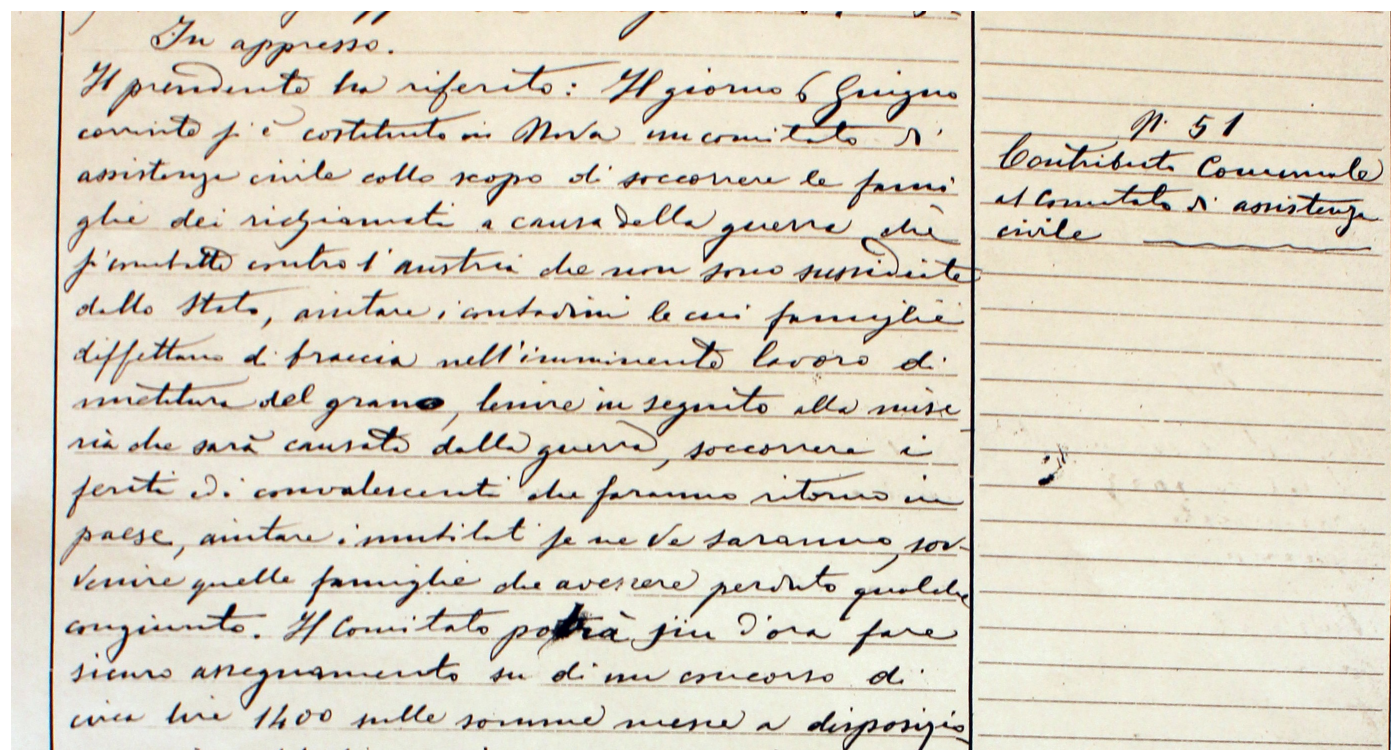 In appresso.
Il presidente ha riferito: Il giorno 6 Giugno
corrente s'è costituito in Nova un comitato di
assistenza civile collo scopo di soccorrere le fami
glie dei richiamati a causa della guerra che
si combatte contro l'Austria che non sono sussidiate
dallo Stato, aiutare i contadini le cui famiglie
diffettano di braccia nell'imminente lavoro di
mietitura del grano, lenire in seguito alla mise
ria che sarà causata dalla guerra, soccorrere i
feriti ed i convalescenti che faranno ritorno in
paese, aiutare i mutilati se ve ne saranno, sov-
venire quelle famiglie che avessero perduto qualche
congiunto. Il Comitato potrà fin d'ora fare
sicuro assegnamento su di un concorso di
circa lire 1400 sulle somme messe a disposizio
N. 51
Contributo Comunale
al Comitato di assistenza
civile